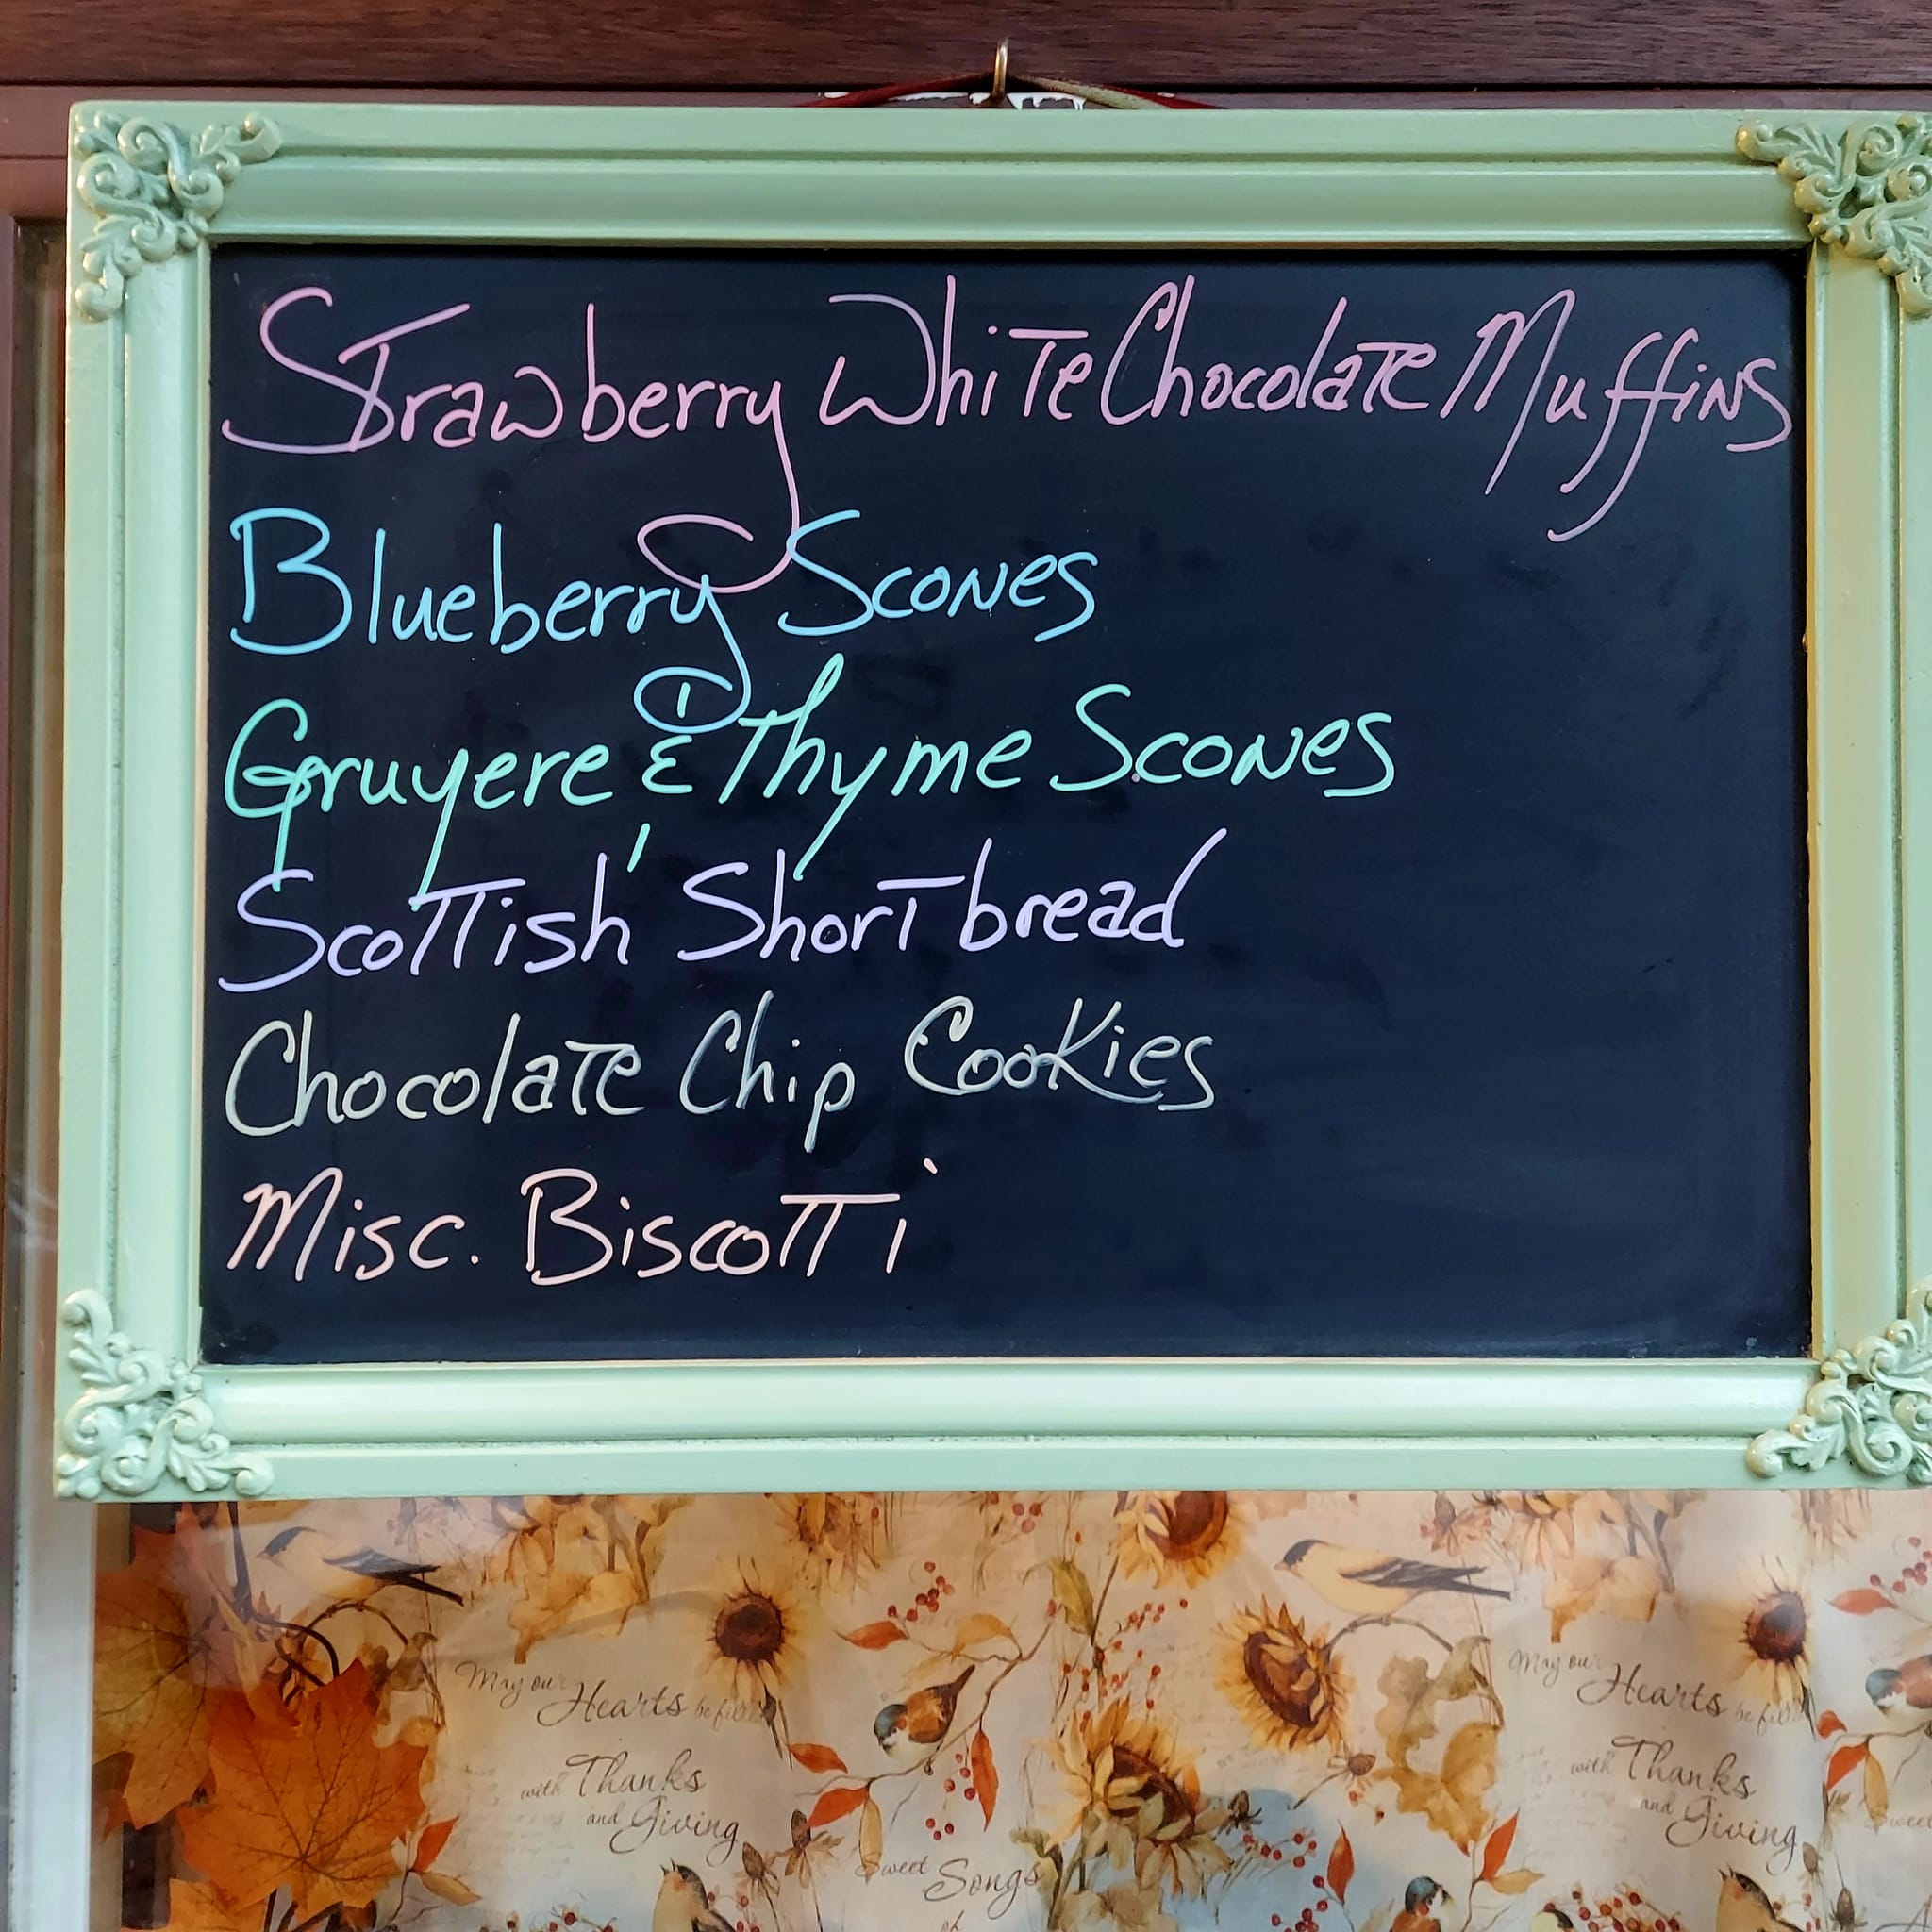 Strawberry White Chocolate Muffins
Blueberry Scones
Gruyere & Thyme Scones
Scottish Shortbread
Chocolate Chip Cookies
Misc. Biscotti
May our Hearts be filled
with Thanks
and Giving
Sweet Songs
of
May our Hearts be filled
with Thanks
and Giving
Sweet